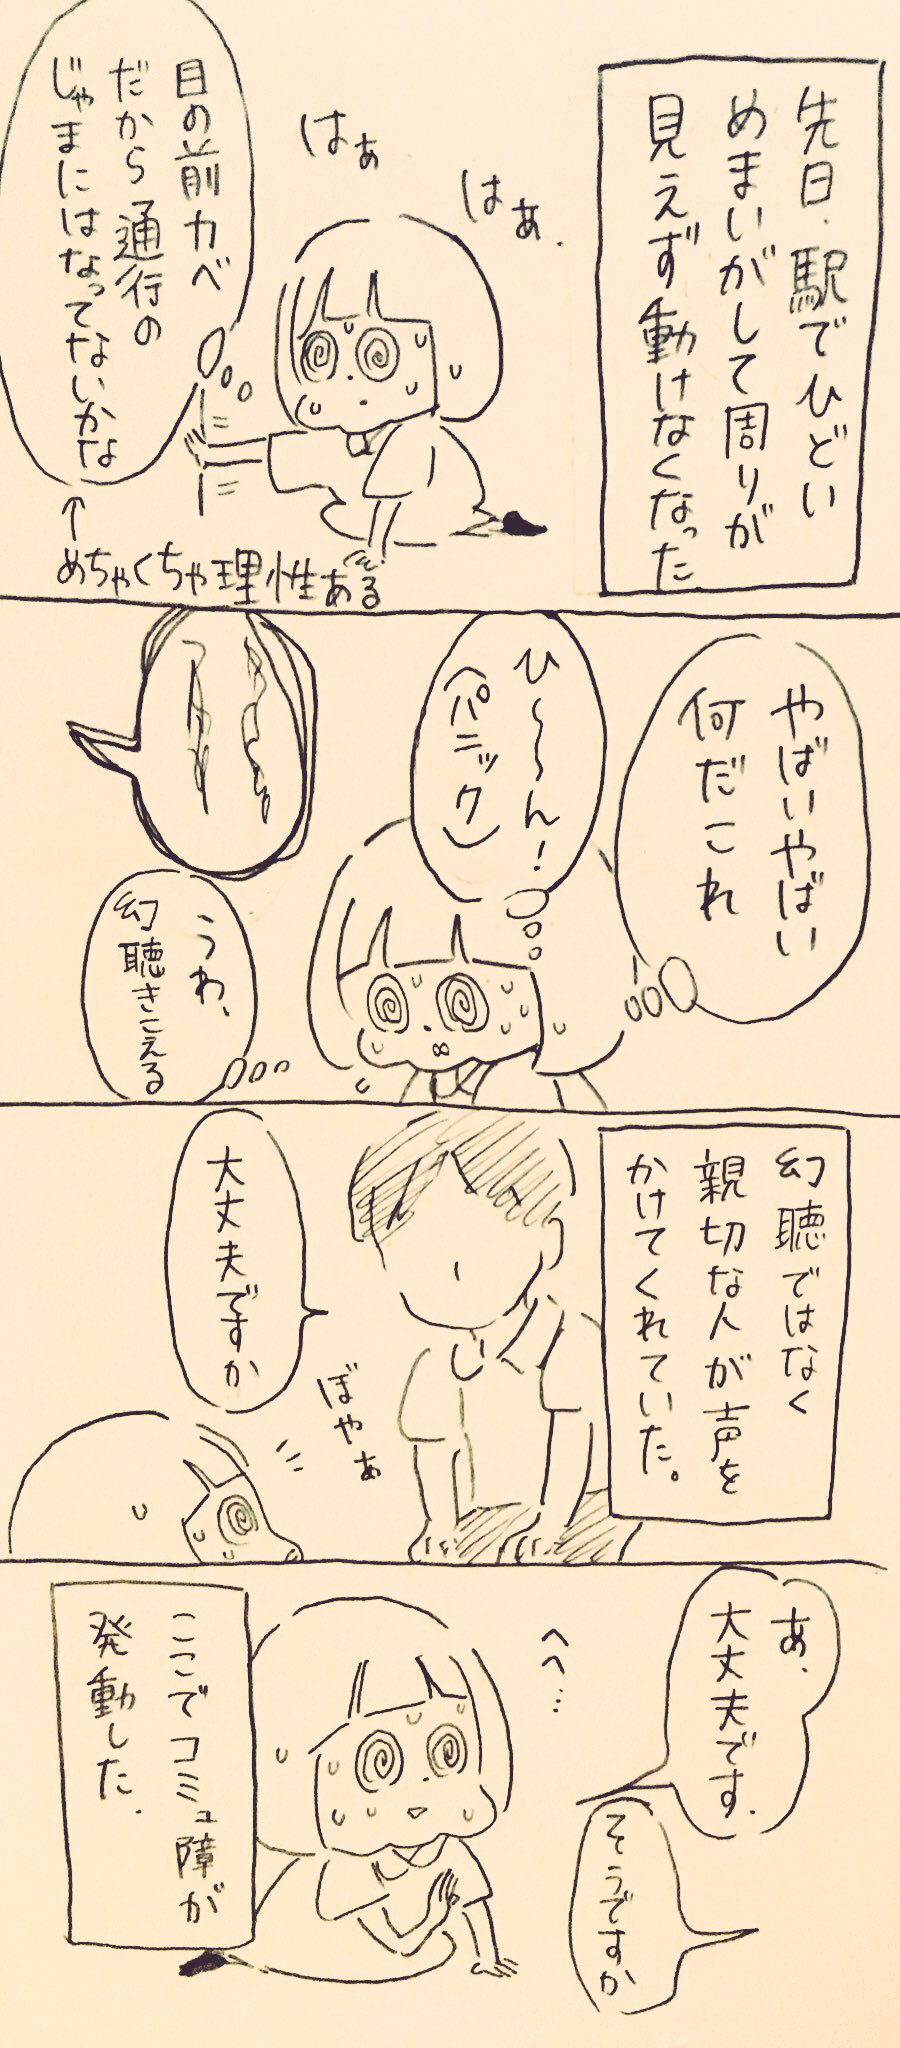 先日、駅でひどい
めまいがして周りが
見えず動けなくなった
はぁ
はぁ、
目の前カベ
だから通行の
じゃまにはなってないかな
↑
めちゃくちゃ理性ある
やばいやばい
何だこれ
ひ〜〜ん!
(パニック)
うわ、
幻聴きこえる
幻聴ではなく
親切な人が声を
かけてくれていた。
大丈夫ですか
ぼやぁ
あ、
大丈夫です、
へへ…
そうですか
ここでコミュ障が
発動した、